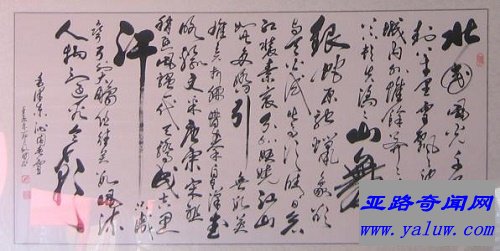 北国风光千里
封万里雪飘
城内外惟馀莽莽
顿失滔滔山舞
银蛇原驰蜡象欲
与天公试比高须晴日看
红装素裹分外妖娆江山
如此多娇引无数英
雄竞折腰惜秦皇汉武
略输文采唐宗宋祖
稍逊风骚一代天骄成吉思
汗只识
弓射大雕俱往矣数风流
人物还看今朝
毛泽东沁园春雪
亚路奇闻网
www.yaluw.com